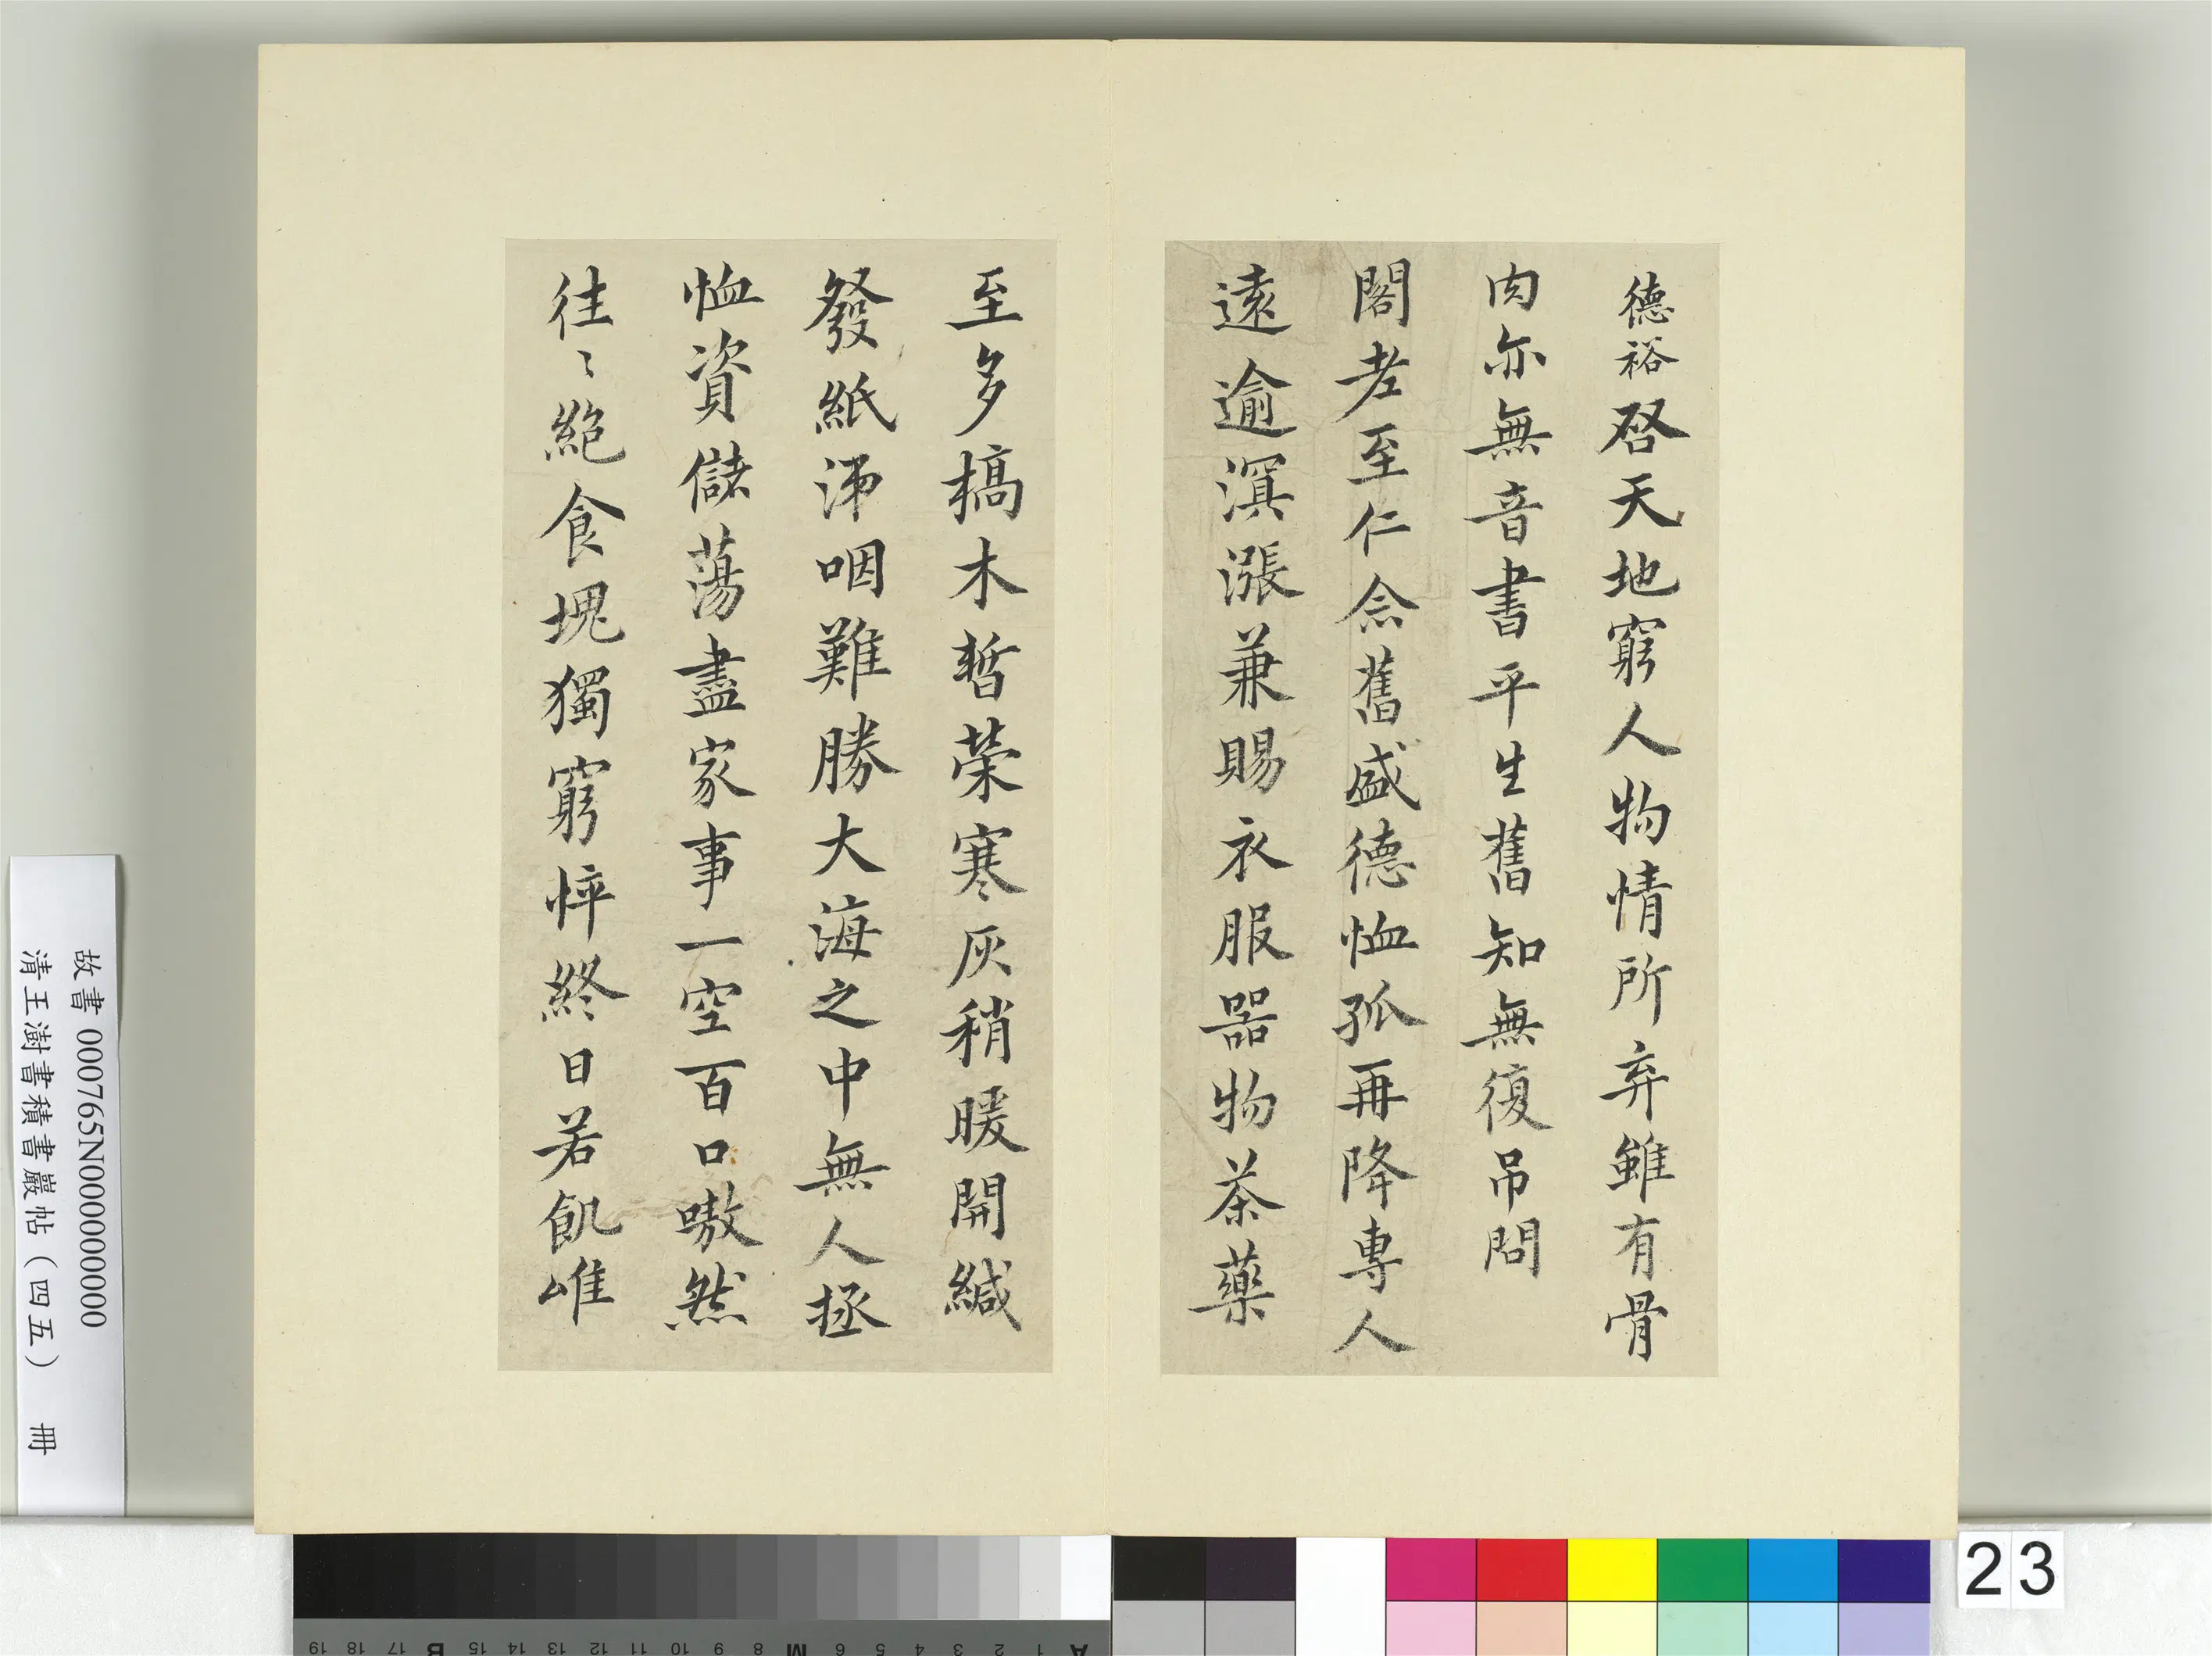 德裕啓天地窮人物情所弃雖有骨
肉亦無音書平生舊知無復吊問
閣老至仁念舊盛德恤孤再降專人
遠逾溟漲兼賜衣服器物茶藥
至多槁木暫榮寒灰稍暖開緘
發紙涕咽難勝大海之中無人拯
恤資儲蕩盡家事一空百口嗷然
往〻絶食塊獨窮悴終日若飢唯
故書 000765N000000000
清王澍書積書巖帖（四五） 冊
23
A 1 2 3 4 5 6 M 8 9 10 11 12 13 14 15 B 17 18 19